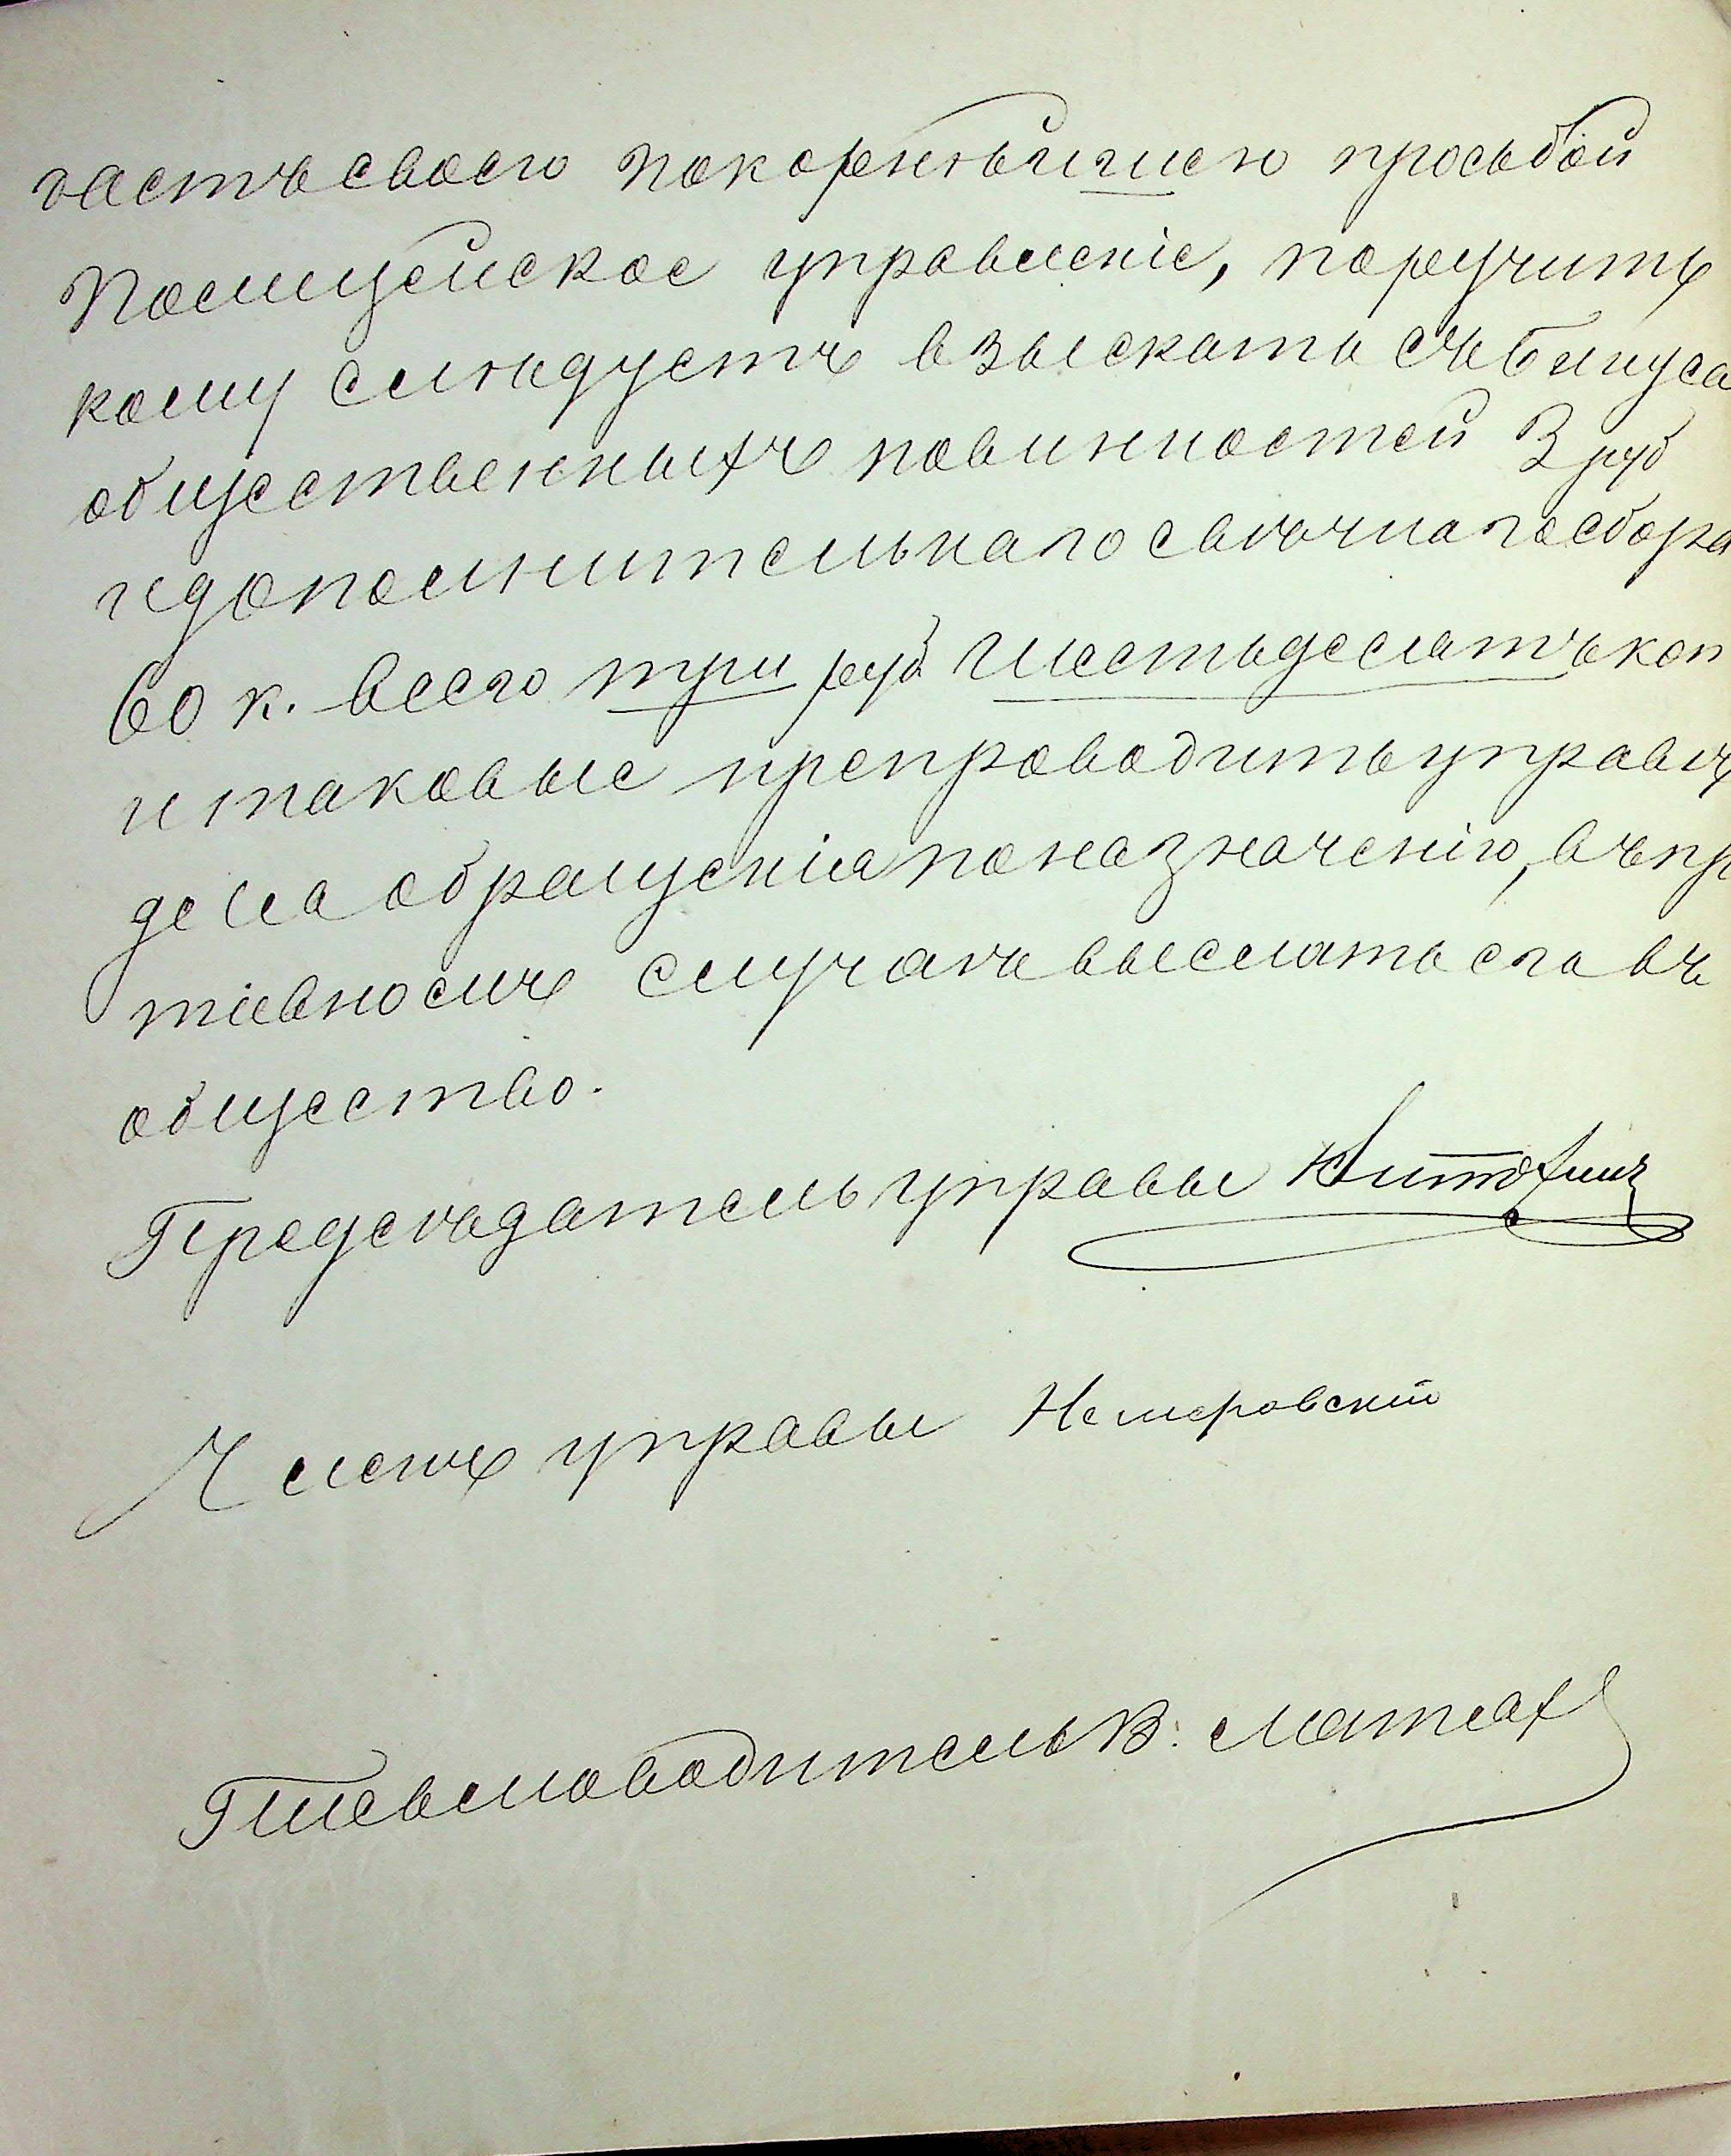 частъ своего покорнѣйшею просьбой
Полицейское управленіе, поручить
кому слѣдуетъ взыскать съ Бинуса
общественныхъ повинностей 3 руб
и дополнительнаго свѣчнаго сбора
60 к. всего три руб шестьдесятъ коп
и таковые препроводить управѣ
для обращенія по назначенію, въ про
тивномъ случаѣ выслать его въ
общество.
Предсѣдатель управы
Членъ управы Немеровскій
Письмоводитель В.